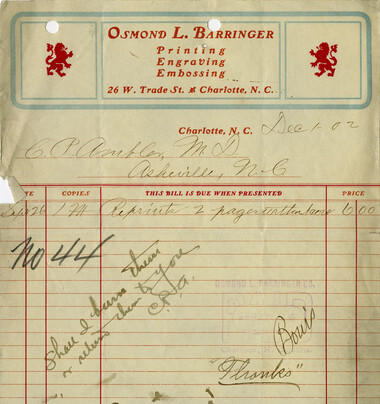 OSMOND L. BARRINGER
Printing
Engraving
Embossing
26 W. Trade St. Charlotte, N. C.
Charlotte, N. C. Dec 1 - 02
C. P. Ambler, M D
Asheville, N-C
TE COPIES THIS BILL IS DUE WHEN PRESENTED PRICE
Reprints 2 pages 6 00
No 44
Shall I burn them
or return them to you
C.P.A.
OSMOND L. BARRINGER CO.
"Thanks"